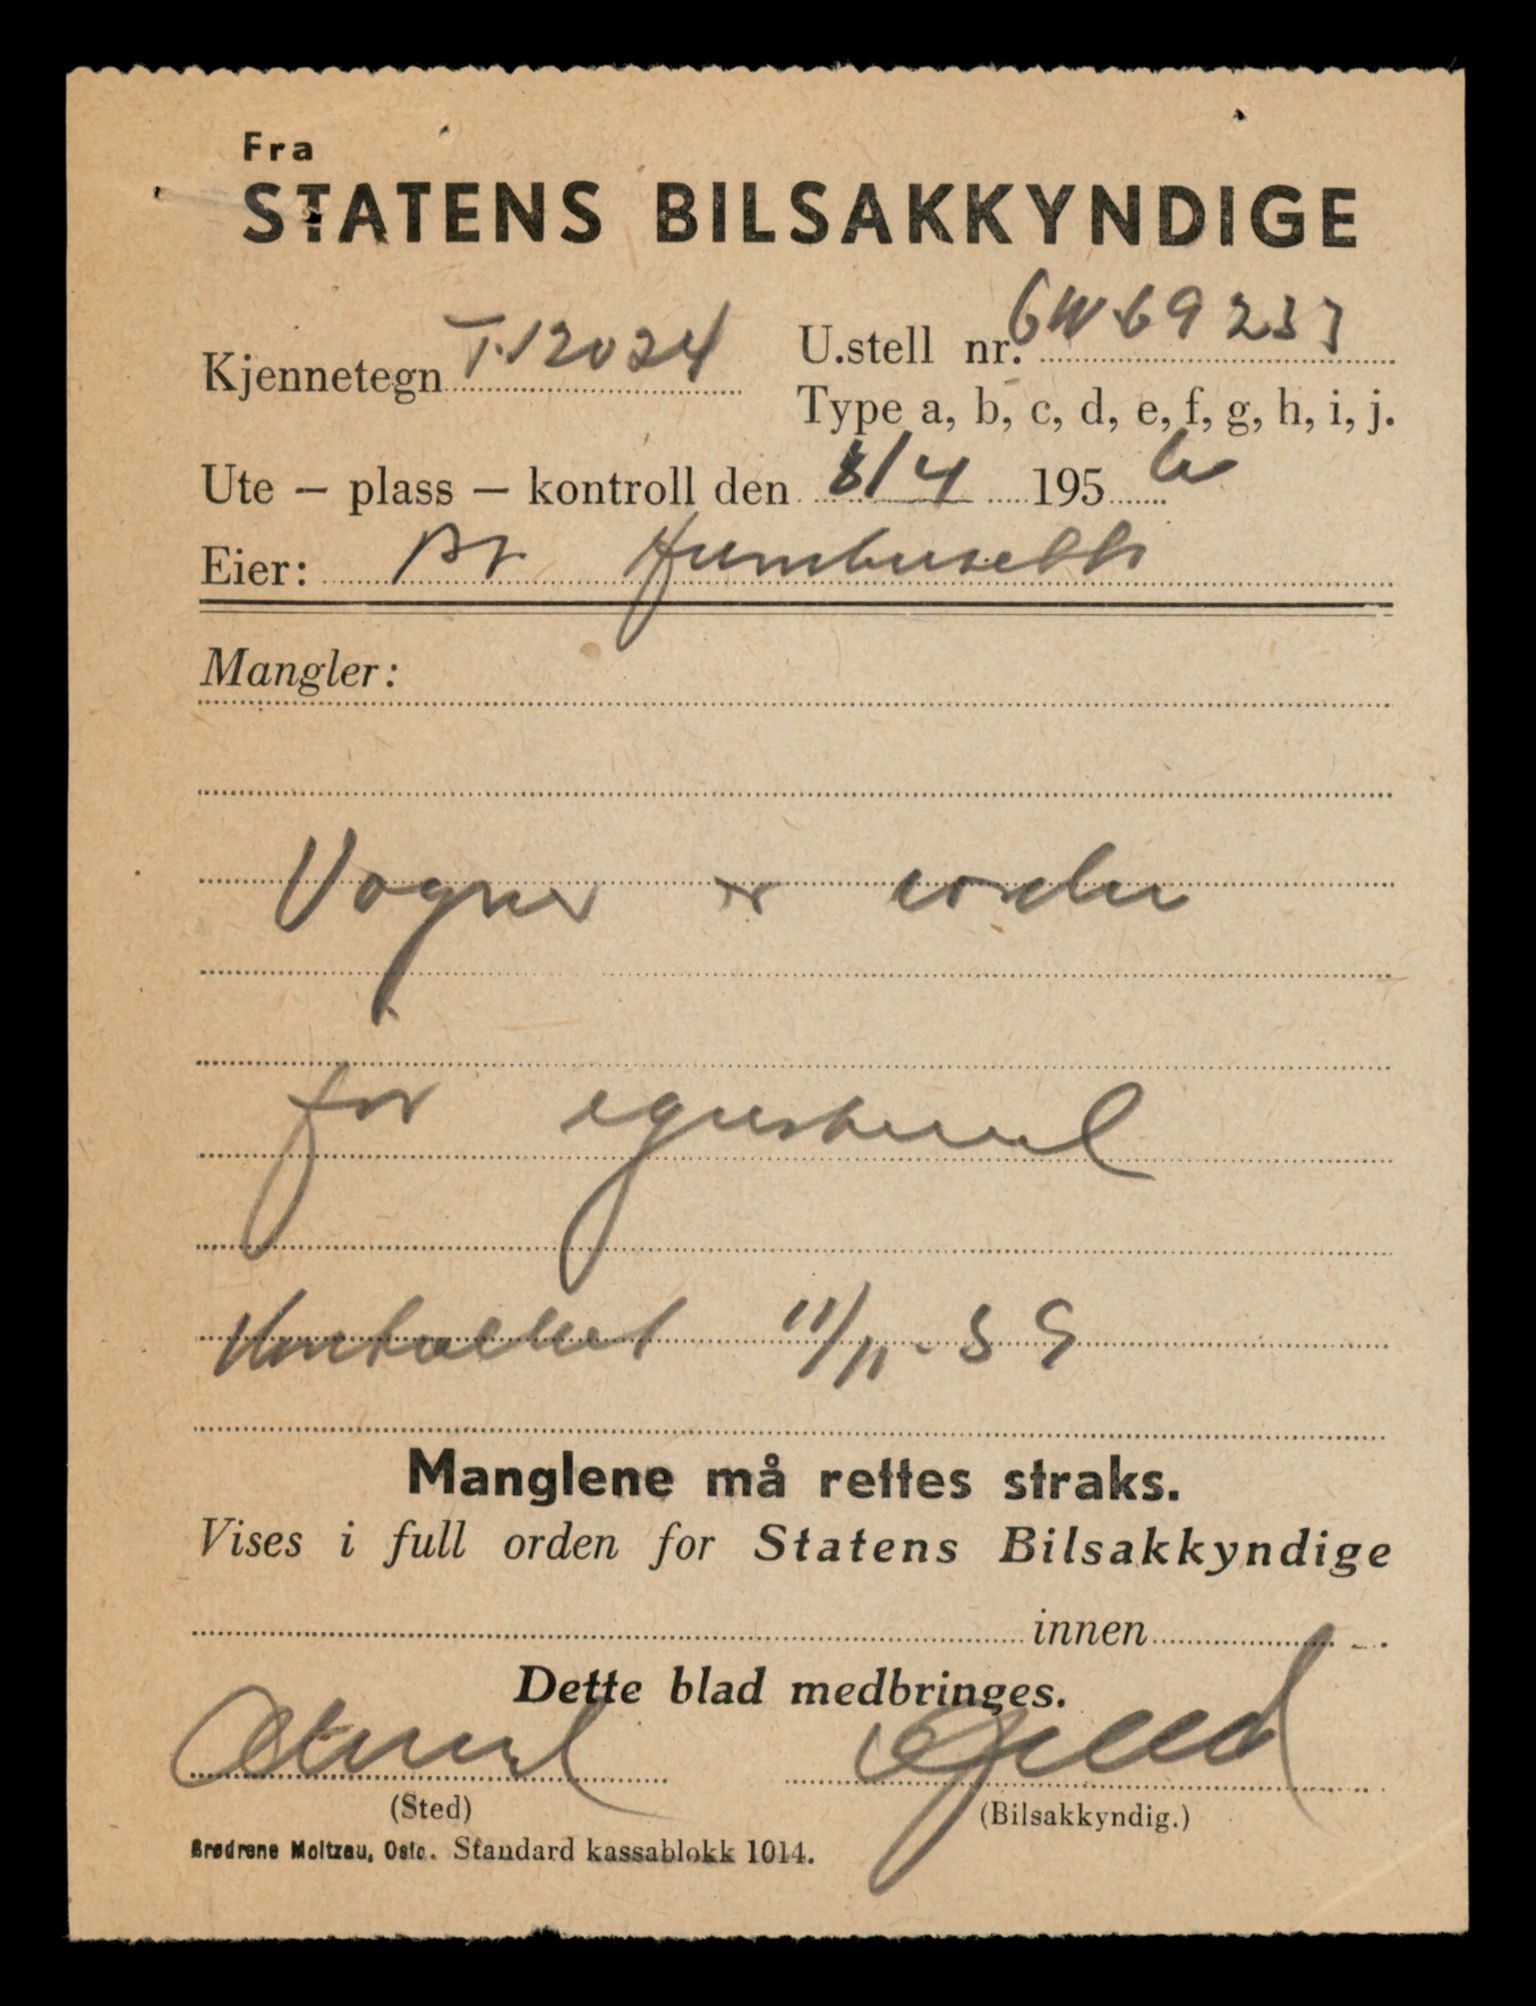 Fra
STATENS BILSAKKYNDIGE
Kjennetegn T-12024 U.stell nr. GW 69237
Type a, b, c, d, e, f, g, h, i, j.
Ute – plass – kontroll den 8/4 195
Eier: Br
Mangler:
Vognen er iorden
for
Kontrollert 11/11.
Manglene må rettes straks.
Vises i full orden for Statens Bilsakkyndige
innen
Dette blad medbringes.
(Sted) (Bilsakkyndig.)
Brødrene Moltzau, Oslo. Standard kassablokk 1014.